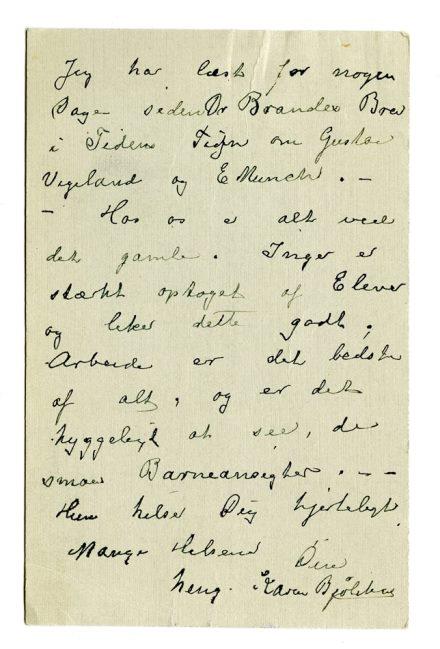 Jeg har læst for nogen
Dage siden Dr Brandes Brev
i Tidens Tegn om Gustav
Vigeland og E Munch . –
– Hos os er alt ved
det gamle . Inger er
stærkt optaget af Elever
og liker dette godt ,
Arbeide er det bedste
af alt , og er det
hyggeligt at see , de
smaa Barneansigter . – –
Hun hilser Dig hjerteligt
Mange Hilsener Din
heng . Karen Bjølstad